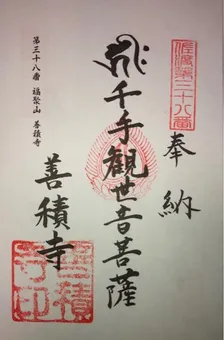 佐渡第三十八番
奉納
千手観世音菩薩
善積寺
善積
寺印
第三十八番 福聚山 善積寺